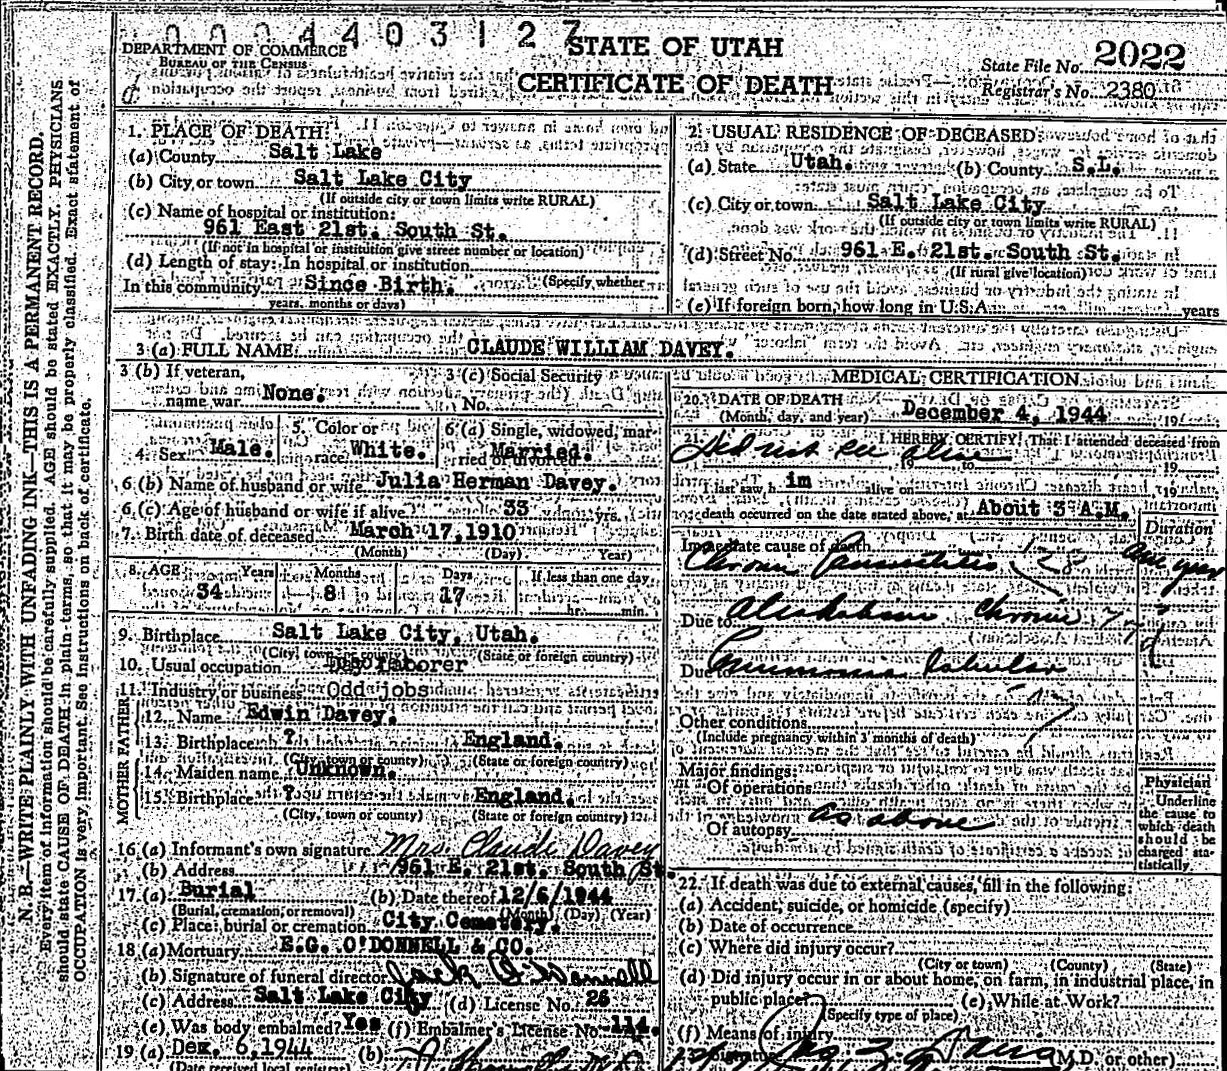 000440312Z
DEPARTMENT OF COMMERCE
BUREAU OF THE CENSUS
STATE OF UTAH
CERTIFICATE OF DEATH
State File No. 2022
Registrar's No. 2380
N. B.—WRITE PLAINLY WITH UNFADING INK—THIS IS A PERMANENT RECORD.
Every item of information should be carefully supplied. AGE should be stated EXACTLY. PHYSICIANS
should state CAUSE OF DEATH in plain terms, so that it may be properly classified. Exact statement of
OCCUPATION is very important. See instructions on back of certificate.
1. PLACE OF DEATH:
(a) County Salt Lake
(b) City or town Salt Lake City
(If outside city or town limits write RURAL)
(c) Name of hospital or institution:
961 East 21st. South St.
(If not in hospital or institution give street number or location)
(d) Length of stay: In hospital or institution
In this community Since Birth. (Specify whether
years, months or days)
2. USUAL RESIDENCE OF DECEASED
(a) State Utah. (b) County S.L.
(c) City or town Salt Lake City
(If outside city or town limits write RURAL)
(d) Street No. 961 E. 21st. South St.
(If rural give location)
(e) If foreign born, how long in U.S.A. years
3 (a) FULL NAME CLAUDE WILLIAM DAVEY.
3 (b) If veteran,
name war None.
3 (c) Social Security
No.
4. Sex Male.
5. Color or
race White.
6 (a) Single, widowed, mar-
ried or divorced Married.
6 (b) Name of husband or wife Julia Herman Davey.
6 (c) Age of husband or wife if alive 33 yrs.
7. Birth date of deceased March 17, 1910
(Month) (Day) Year)
8. AGE Years Months Days If less than one day
34 8 17 hr. min.
9. Birthplace Salt Lake City, Utah.
(City, town or county) (State or foreign country)
10. Usual occupation Day laborer
11. Industry or business Odd jobs
FATHER
12. Name Edwin Davey.
13. Birthplace ? England.
(City, town or county) (State or foreign country)
MOTHER
14. Maiden name Unknown.
15. Birthplace ? England.
(City, town or county) (State or foreign country)
16 (a) Informant's own signature Mrs. Claude Davey
(b) Address 961 E. 21st. South St.
17. (a) Burial (b) Date thereof 12/6/1944
(Burial, cremation, or removal) (Month) (Day) (Year)
(c) Place: burial or cremation City Cemetery.
18 (a) Mortuary E.G. O'DONNELL & CO.
(b) Signature of funeral director Jack O'Donnell
(c) Address Salt Lake City (d) License No. 26
(e) Was body embalmed? Yes (f) Embalmer's License No. 114.
19 (a) Dex. 6, 1944 (b)
(Date received local registrar)
MEDICAL CERTIFICATION
20. DATE OF DEATH
(Month, day, and year) December 4, 1944
21. I HEREBY CERTIFY: That I attended deceased from
Did not see alive 19 to 19
I last saw h im alive on 19
death occurred on the date stated above, at About 3 A.M.
Duration
Immediate cause of death
Chronic Pancreatitis 128 one year
Due to Alcoholism Chronic 77
Due to Pneumonia Lobular
Other conditions
(Include pregnancy within 3 months of death)
Major findings:
Of operations
Of autopsy as above
Physician
Underline
the cause to
which death
should be
charged sta-
tistically.
22. If death was due to external causes, fill in the following:
(a) Accident, suicide, or homicide (specify)
(b) Date of occurrence
(c) Where did injury occur?
(City or town) (County) (State)
(d) Did injury occur in or about home, on farm, in industrial place, in
public place? (e) While at Work?
(Specify type of place)
(f) Means of injury
Signature M.D. or other)